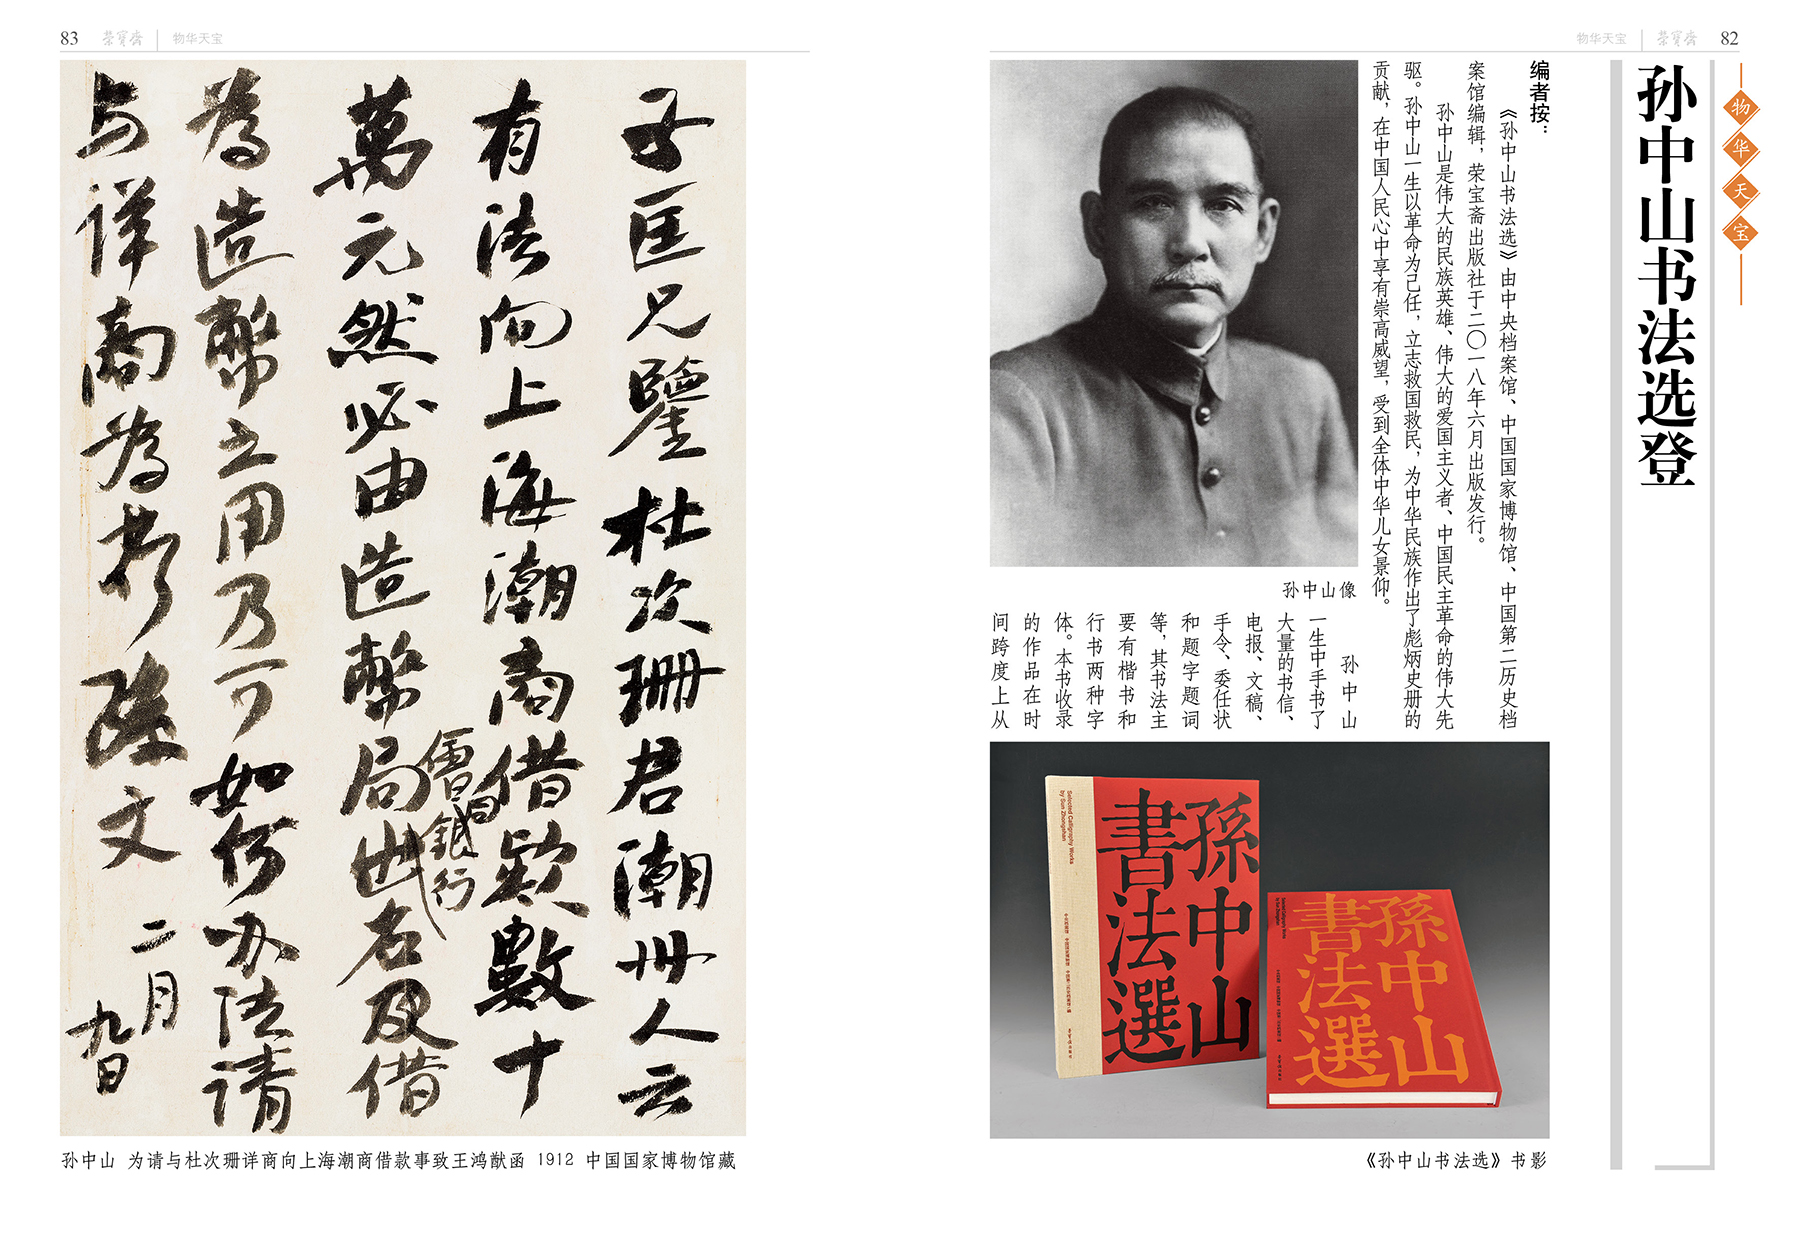 82
荣宝斋
物华天宝
物华天宝
孙中山书法选登
编者按：
《孙中山书法选》由中央档案馆、中国国家博物馆、中国第二历史档
案馆编辑，荣宝斋出版社于二〇一八年六月出版发行。
孙中山是伟大的民族英雄、伟大的爱国主义者、中国民主革命的伟大先
驱。孙中山一生以革命为己任，立志救国救民，为中华民族作出了彪炳史册的
贡献，在中国人民心中享有崇高威望，受到全体中华儿女景仰。
孙中山像
孙中山
一生中手书了
大量的书信、
电报、文稿、
手令、委任状
和题字题词
等，其书法主
要有楷书和
行书两种字
体。本书收录
的作品在时
间跨度上从
孫中山
書法選
Selected Calligraphy Works
by Sun Zhongshan
孫中山
書法選
《孙中山书法选》书影
83
荣宝斋
物华天宝
子匡兄鑒杜次珊君潮州人云
有法向上海潮商借款數十
萬元然必由造幣局出名及借
銀行
為造幣之用乃可如何办法請
与详商為荷孫文
二月
九日
孙中山 为请与杜次珊详商向上海潮商借款事致王鸿猷函 1912 中国国家博物馆藏